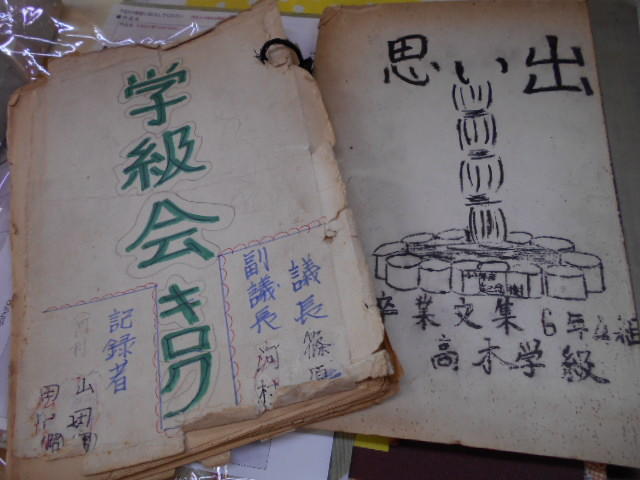 学級会キロク
議長 篠原
副議長 河村
記録者
河村 山田
思い出
卒業文集 6年4組
高木学級